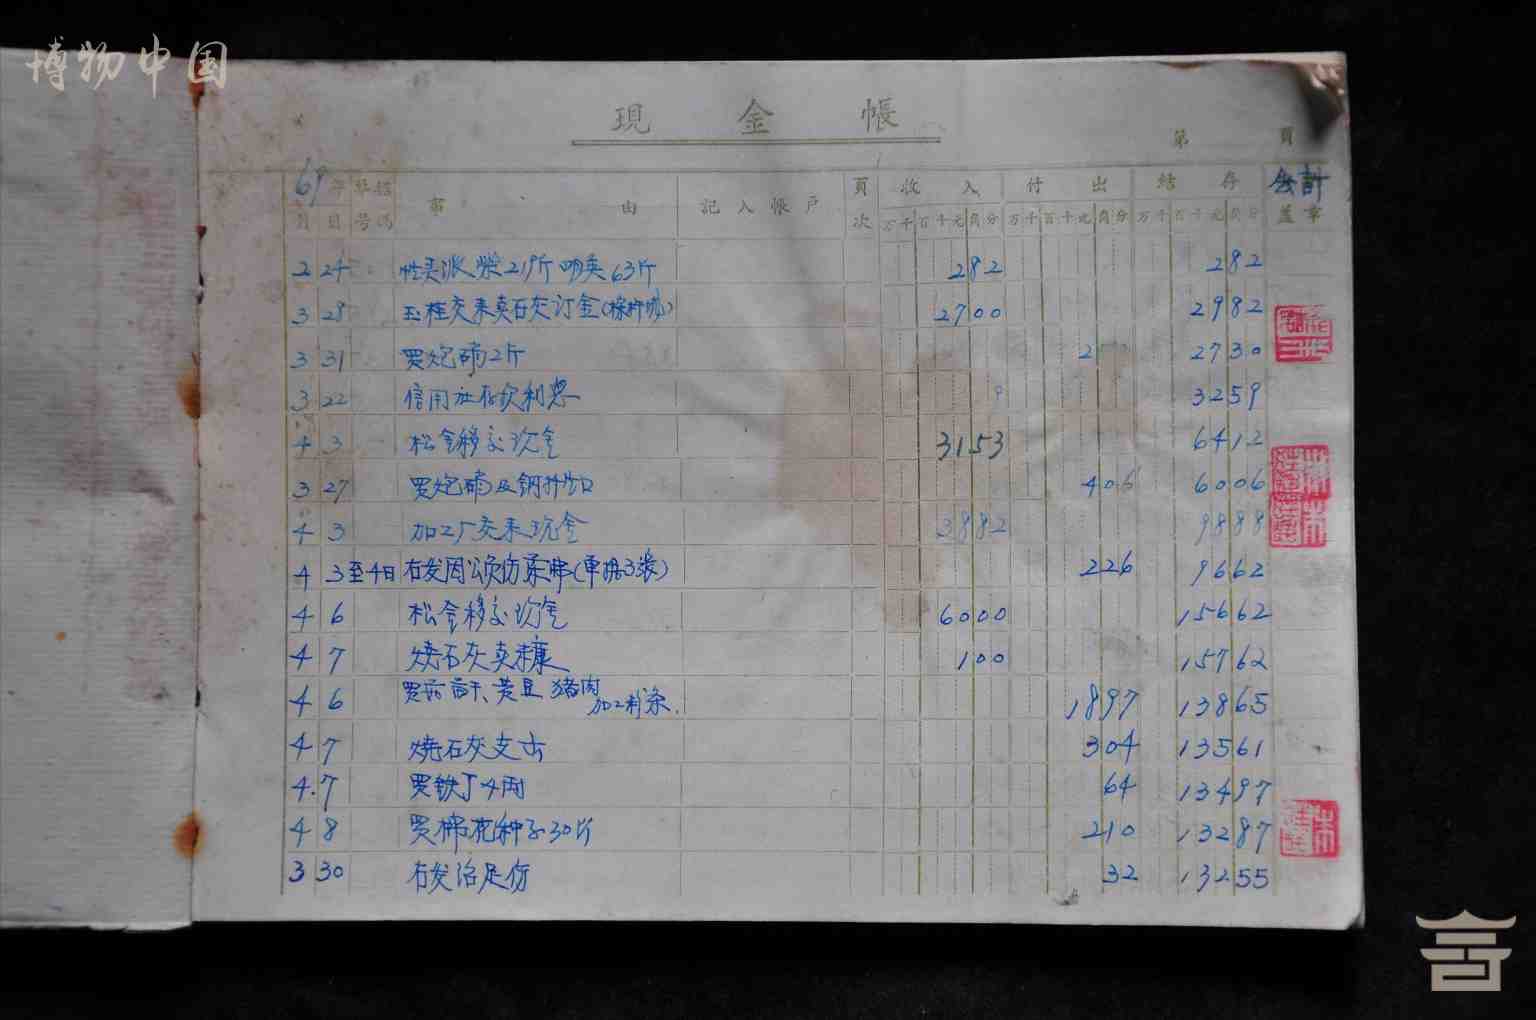 博物中国
現金帳
第 頁
69年 憑證 事由 記入帳戶 頁次 收入 付出 結存 会計
月 日 号碼 万千百十元角分 万千百十元角分 万千百十元角分 蓋章
2 24 柴219斤 63斤 282 282
3 28 玉桂交来卖石灰订金 2700 2982
3 31 买炮硝2斤 2 2730
3 22 信用社存款利息 9 3259
4 3 松金移交现金 3153 6412
3 27 买炮硝及钢 406 6006
4 3 加工厂交来现金 3882 9888
4 3至4日 右发因公负伤 (单据3张) 226 9662
4 6 松金移交现金 6000 15662
4 7 烧石灰卖糠 100 15762
4 6 买 黄豆 猪肉 加工粉条 1897 13865
4 7 烧石灰支出 304 13561
4.7 买铁丁4两 64 13497
4 8 买棉花种子30斤 210 13287
3 30 右发治足伤 32 13255